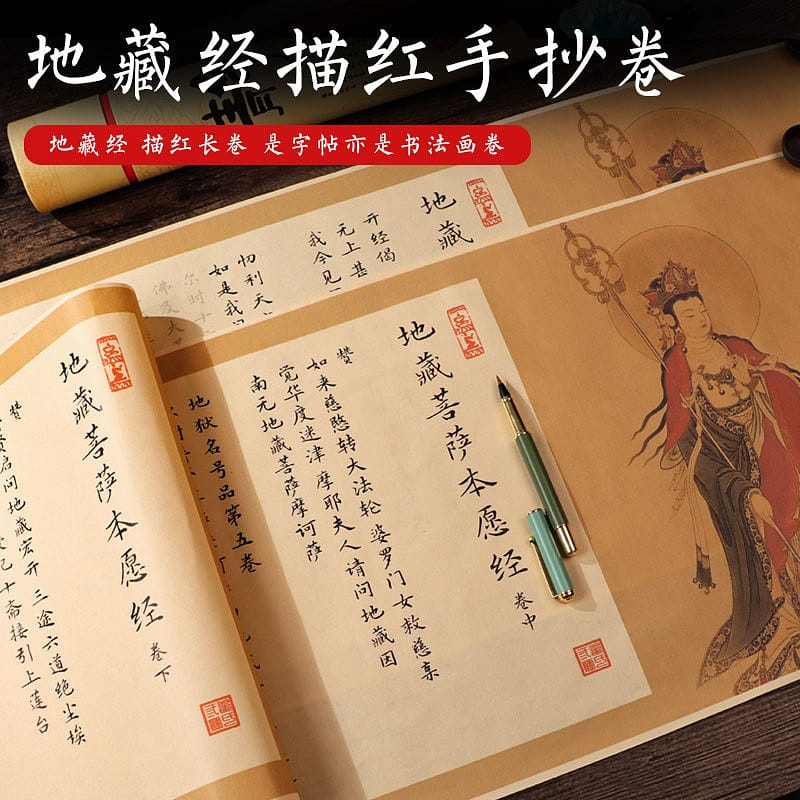 地藏经描红手抄卷
地藏经 描红长卷 是字帖亦是书法画卷
地藏
开经偈
无上甚
我今见
忉利天
如是我
尔时十
佛及大
地藏菩萨本愿经 卷中
赞
如来慈愍转大法轮 婆罗门女救慈亲
觉华度迷津 摩耶夫人请问地藏因
南无地藏菩萨摩诃萨
地狱名号品第五卷
地藏菩萨本愿经 卷下
赞
启问地藏宏开三途六道绝尘埃
十斋接引上莲台